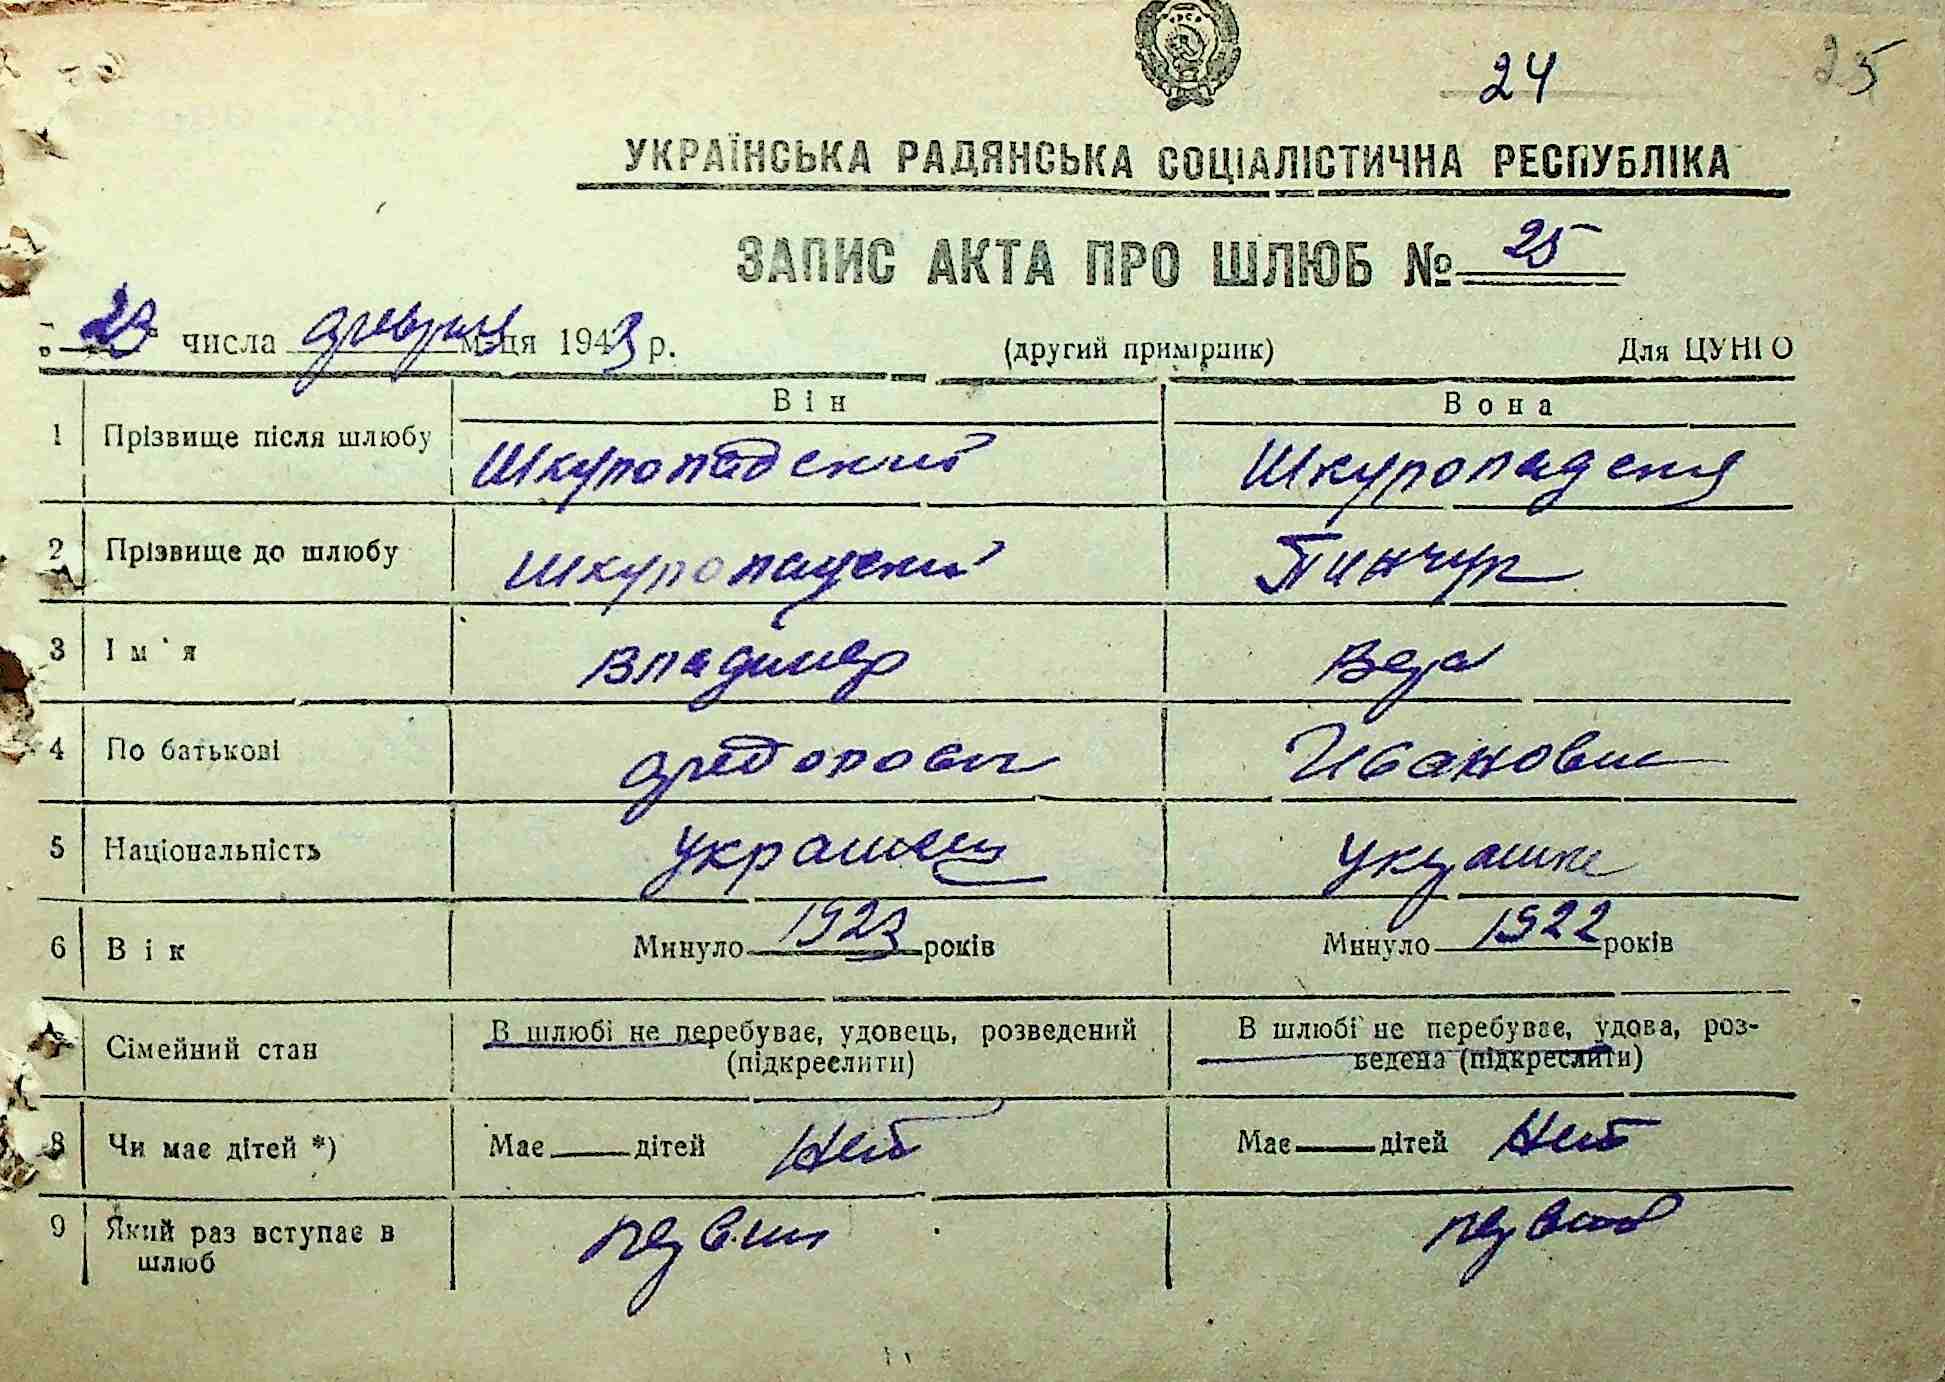 24 25
УКРАЇНСЬКА РАДЯНСЬКА СОЦІАЛІСТИЧНА РЕСПУБЛІКА
ЗАПИС АКТА ПРО ШЛЮБ № 25
числа м-ця 1943 р. (другий примірник) Для ЦУНГО
Він Вона
1 Прізвище після шлюбу Шкуропадский Шкуропадская
2 Прізвище до шлюбу Шкуропадский Пинчук
3 Ім'я Владимер Вера
4 По батькові Федорович Ивановна
5 Національність Украинец Украинка
6 Вік Минуло 1923 років Минуло 1922 років
7 Сімейний стан В шлюбі не перебуває, удовець, розведений В шлюбі не перебуває, удова, роз-
(підкреслити) ведена (підкреслити)
8 Чи має дітей *) Має дітей Нет Має дітей Нет
9 Який раз вступає в первий первий
шлюб